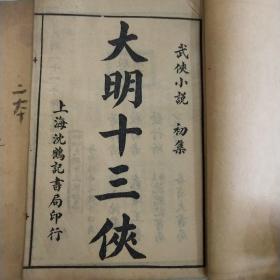 武俠小說　初集
大明十三俠
上海沈鶴記書局印行
二本